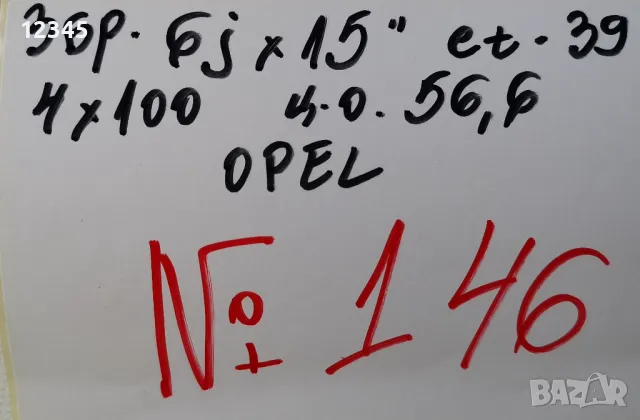 12345
3бр. 6j x 15" et. 39
4 x 100 ц.о. 56,6
OPEL
№ 146
BAZAR